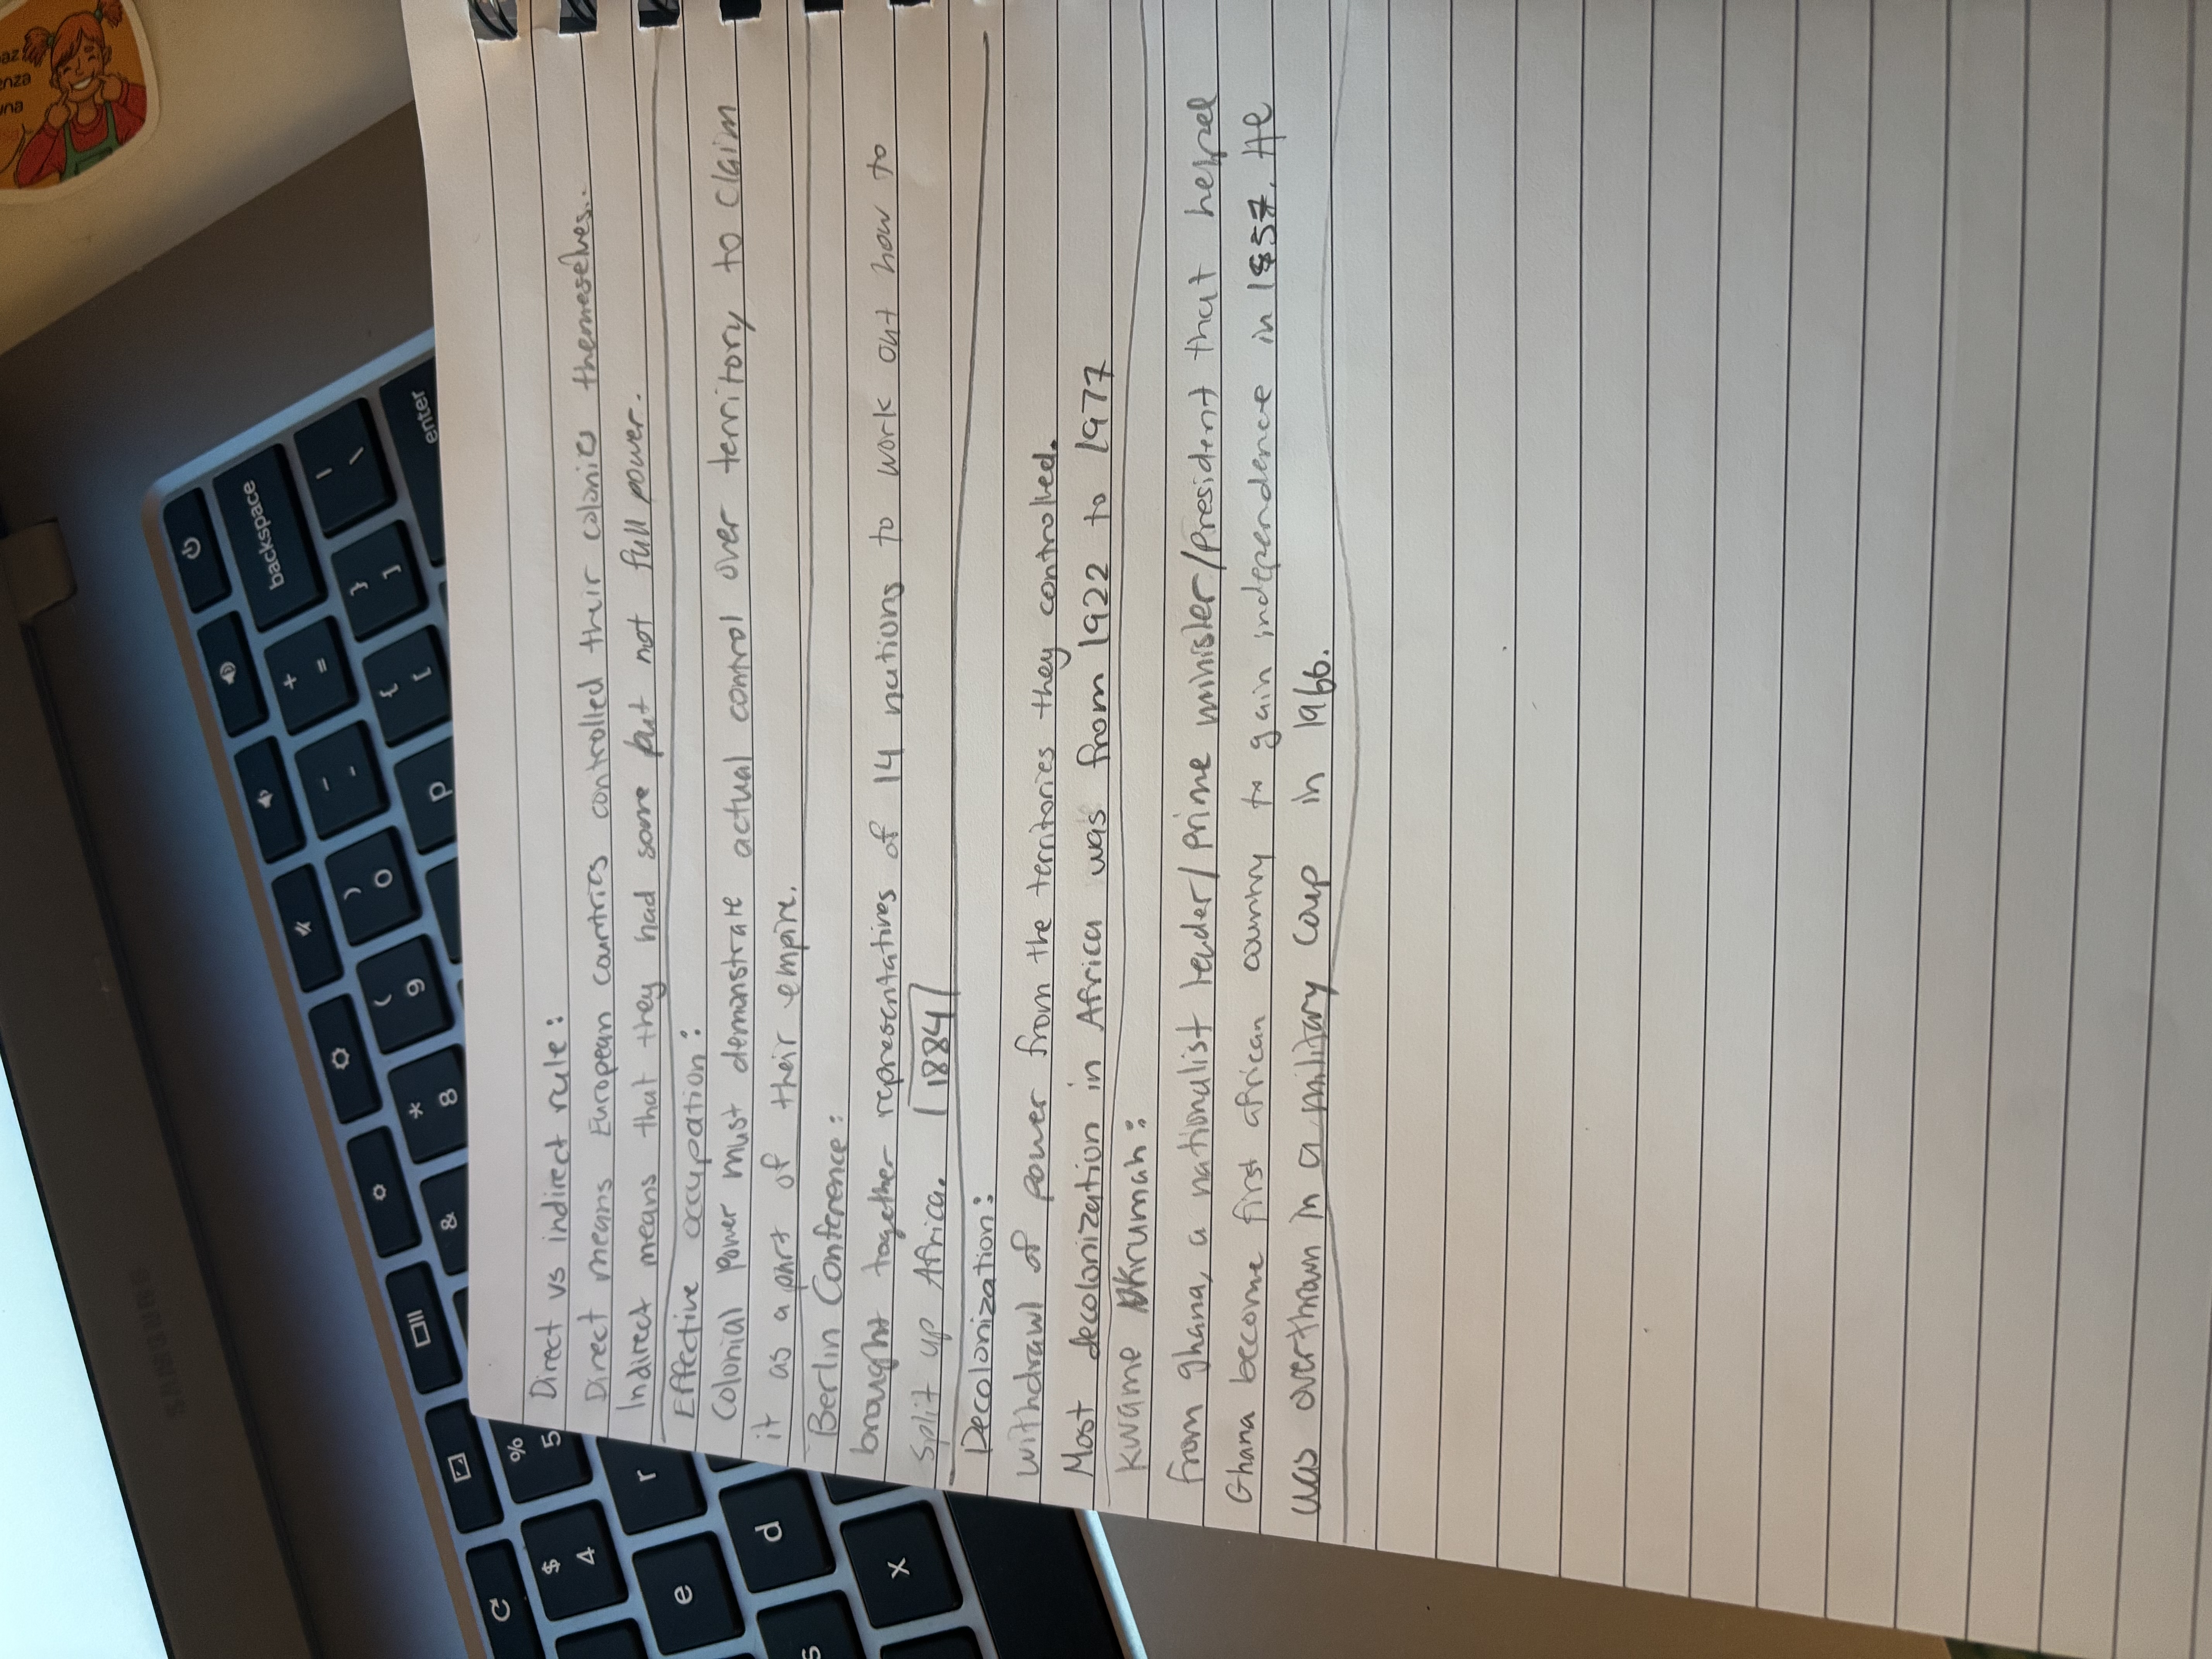 Direct vs indirect rule:
Direct means European countries controlled their colonies themeselves.
Indirect means that they had some but not full power.
Effective occupation:
Colonial power must demonstrate actual control over territory to claim
it as a part of their empire.
Berlin Conference:
brought together representatives of 14 nations to work out how to
split up Africa. 1884
Decolonization:
withdrawl of power from the territories they controlled.
Most decolonization in Africa was from 1922 to 1977
Kwame Nkrumah:
from ghana, a nationalist leader/prime minister/president that helped
Ghana become first african country to gain independence in 1957. He
was overthrown in a military coup in 1966.
backspace
enter
| \
+ =
} ]
{ [
_ -
p
) 0
( 9
* 8
& 
% 5
$ 4
r
e
d
x
s
SAMSUNG